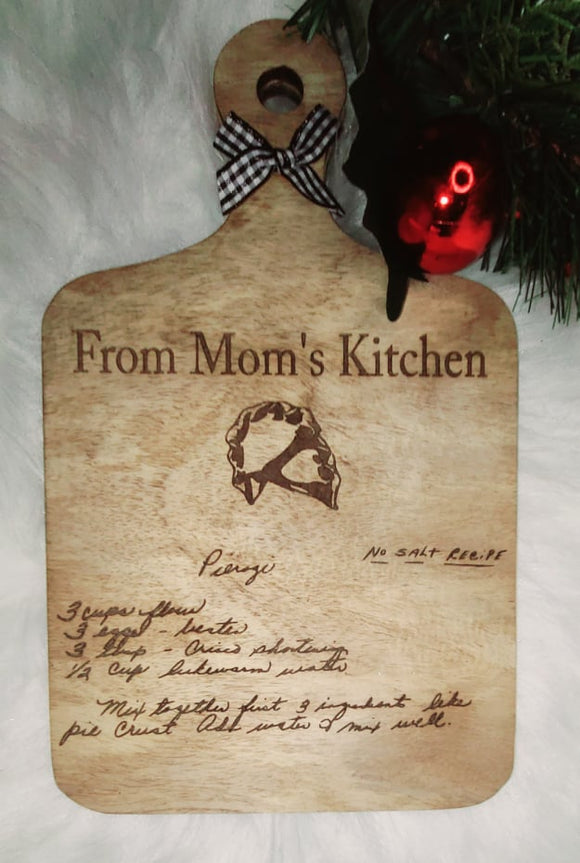 From Mom's Kitchen
No SALT RECIPE
Pierogi
3 cups flour
3 eggs - beaten
3 tbsp - Crisco shortening
1/2 cup lukewarm water
Mix together first 3 ingredients like
pie crust Add water & mix well.